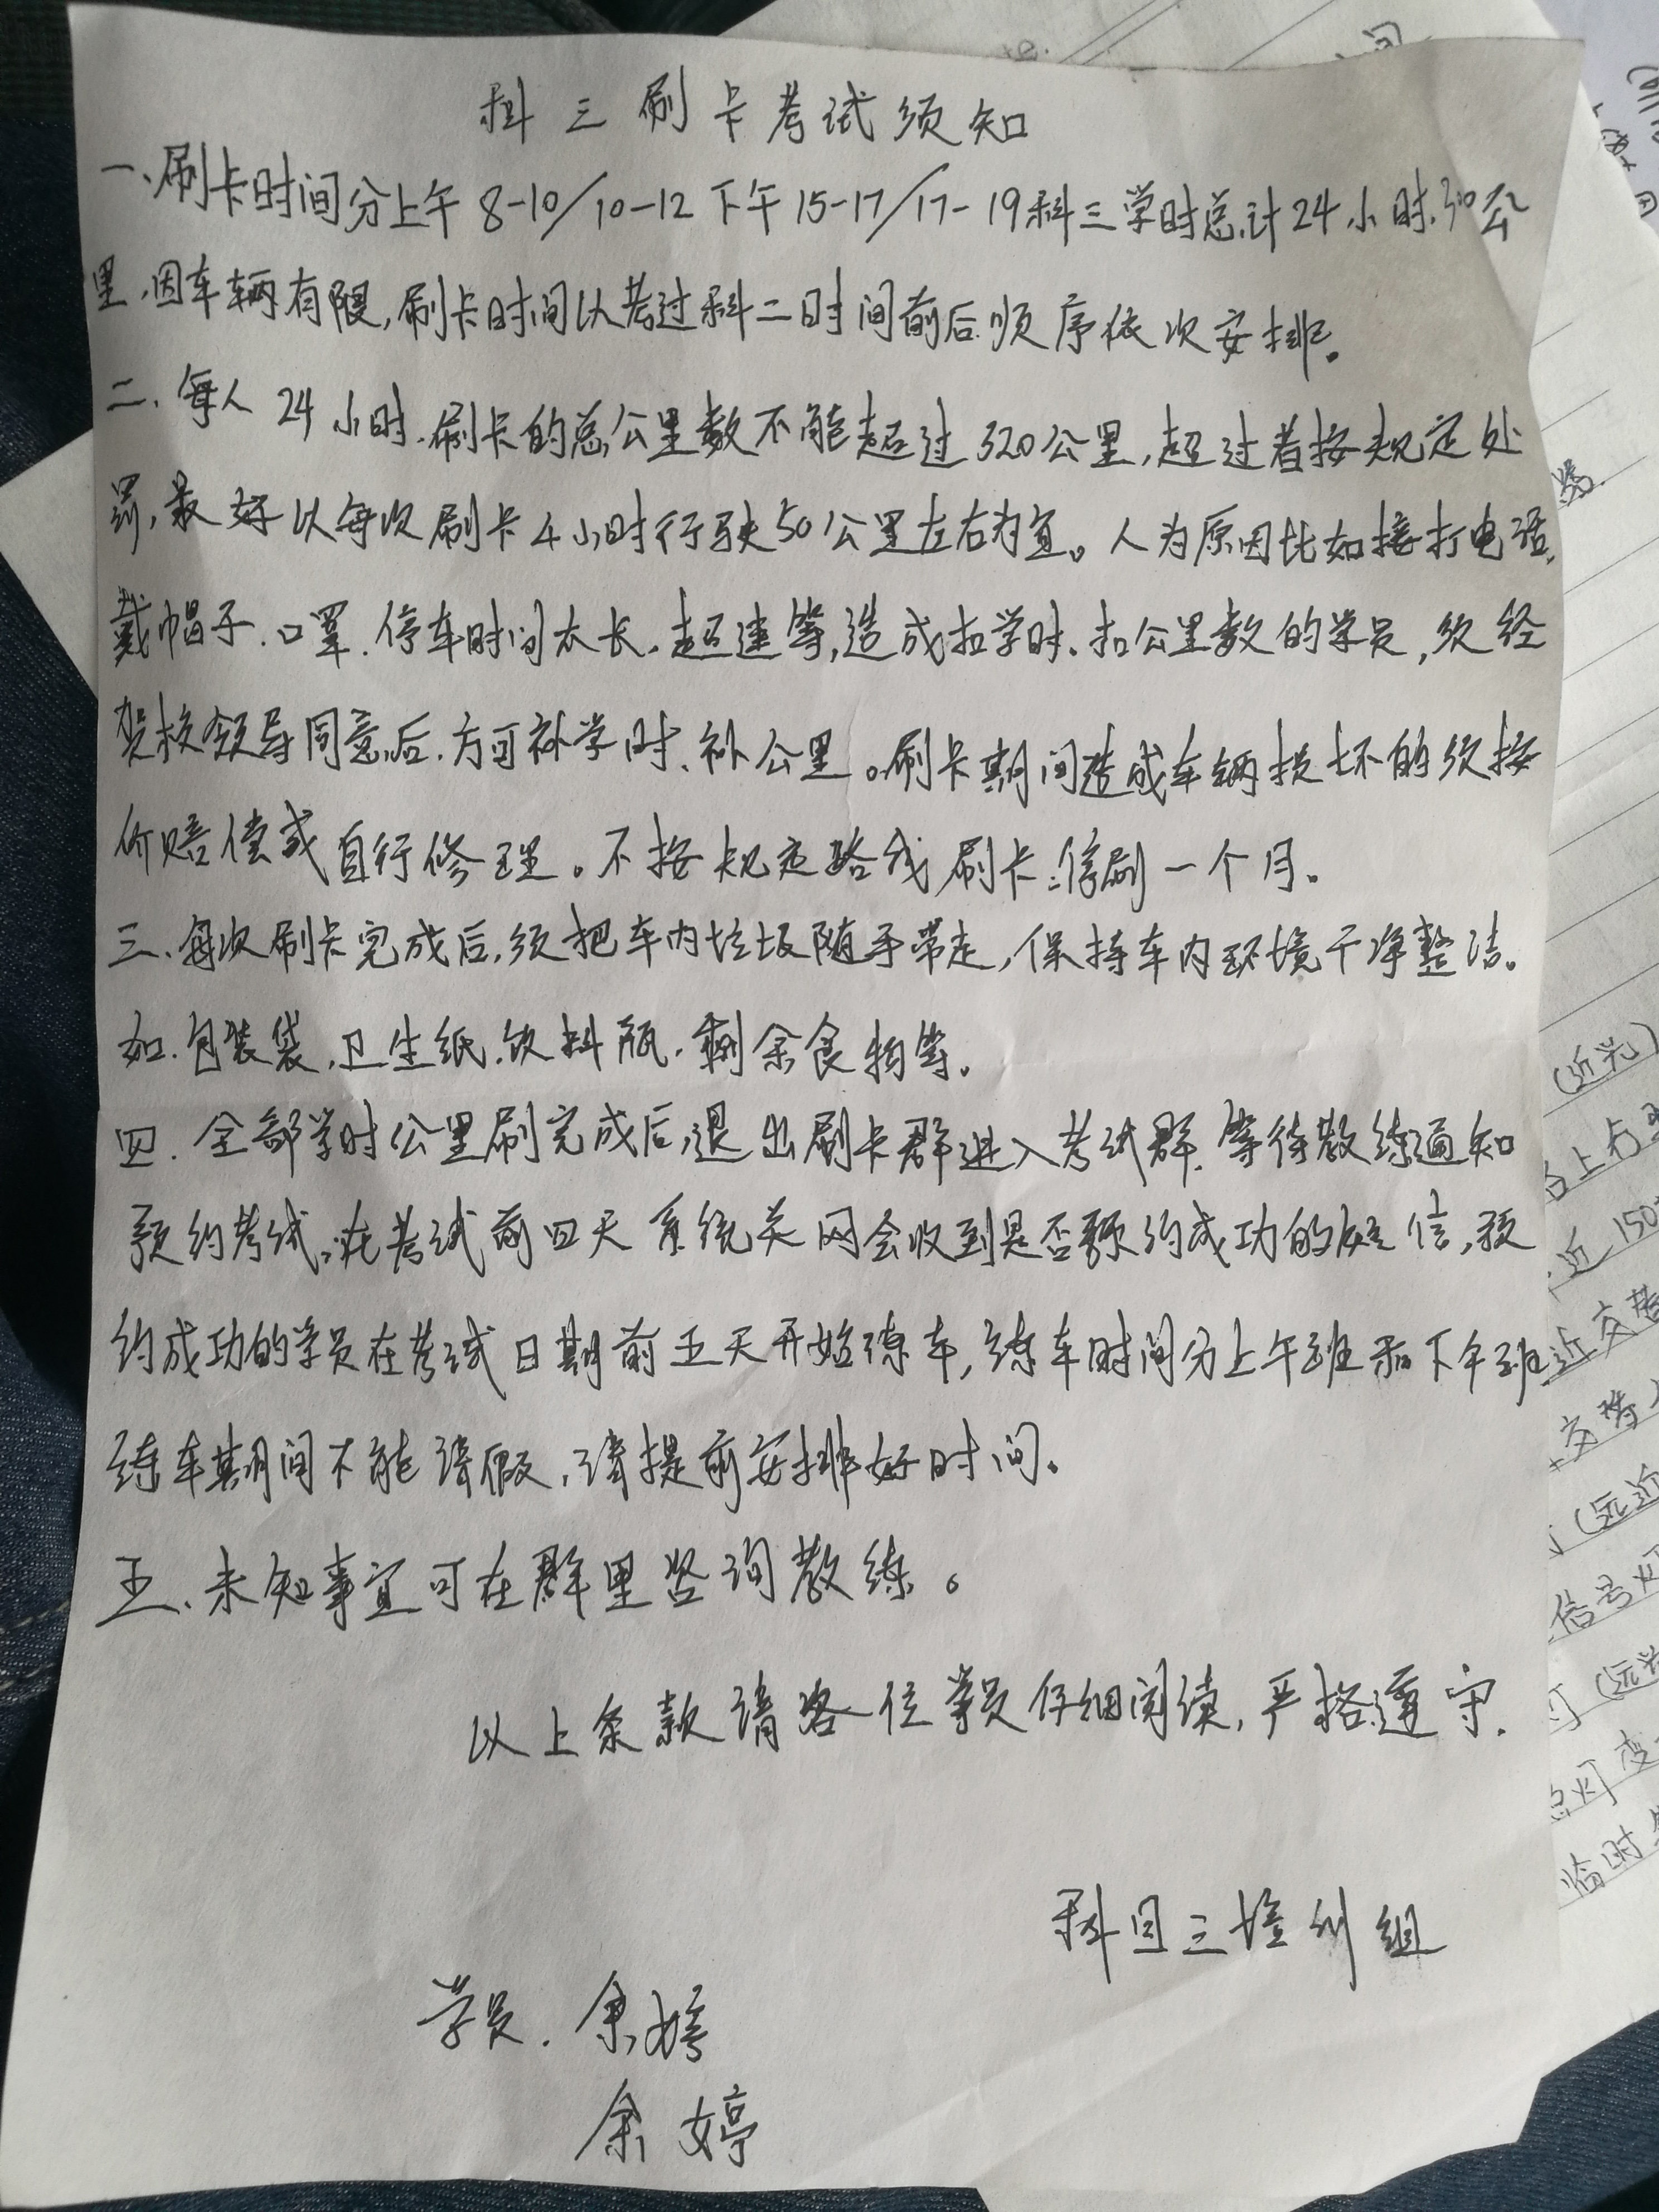 科三刷卡考试须知
一、刷卡时间分上午8-10/10-12下午15-17/17-19科三学时总计24小时.310公
里.因车辆有限,刷卡时间以考过科二时间前后顺序依次安排。
二、每人24小时.刷卡的总公里数不能超过320公里,超过者按规定处
罚,最好以每次刷卡4小时行驶50公里左右为宜。人为原因比如接打电话、
戴帽子.口罩.停车时间太长.超速等,造成扣学时、扣公里数的学员,须经
驾校领导同意后.方可补学时、补公里。刷卡期间造成车辆损坏的须按
价赔偿或自行修理。不按规定路线刷卡:停刷一个月。
三、每次刷卡完成后,须把车内垃圾随手带走,保持车内环境干净整洁。
如.包装袋.卫生纸.饮料瓶.剩余食物等。
四.全部学时公里刷完成后,退出刷卡群进入考试群.等待教练通知
预约考试。在考试前四天系统关网会收到是否预约成功的短信,预
约成功的学员在考试日期前五天开始练车,练车时间分上午班和下午班
练车期间不能请假,请提前安排好时间。
五、未知事宜可在群里咨询教练。
以上条款请各位学员仔细阅读,严格遵守.
科目三培训组
学员.余婷
余婷
(近光)
近150
信号灯
临时